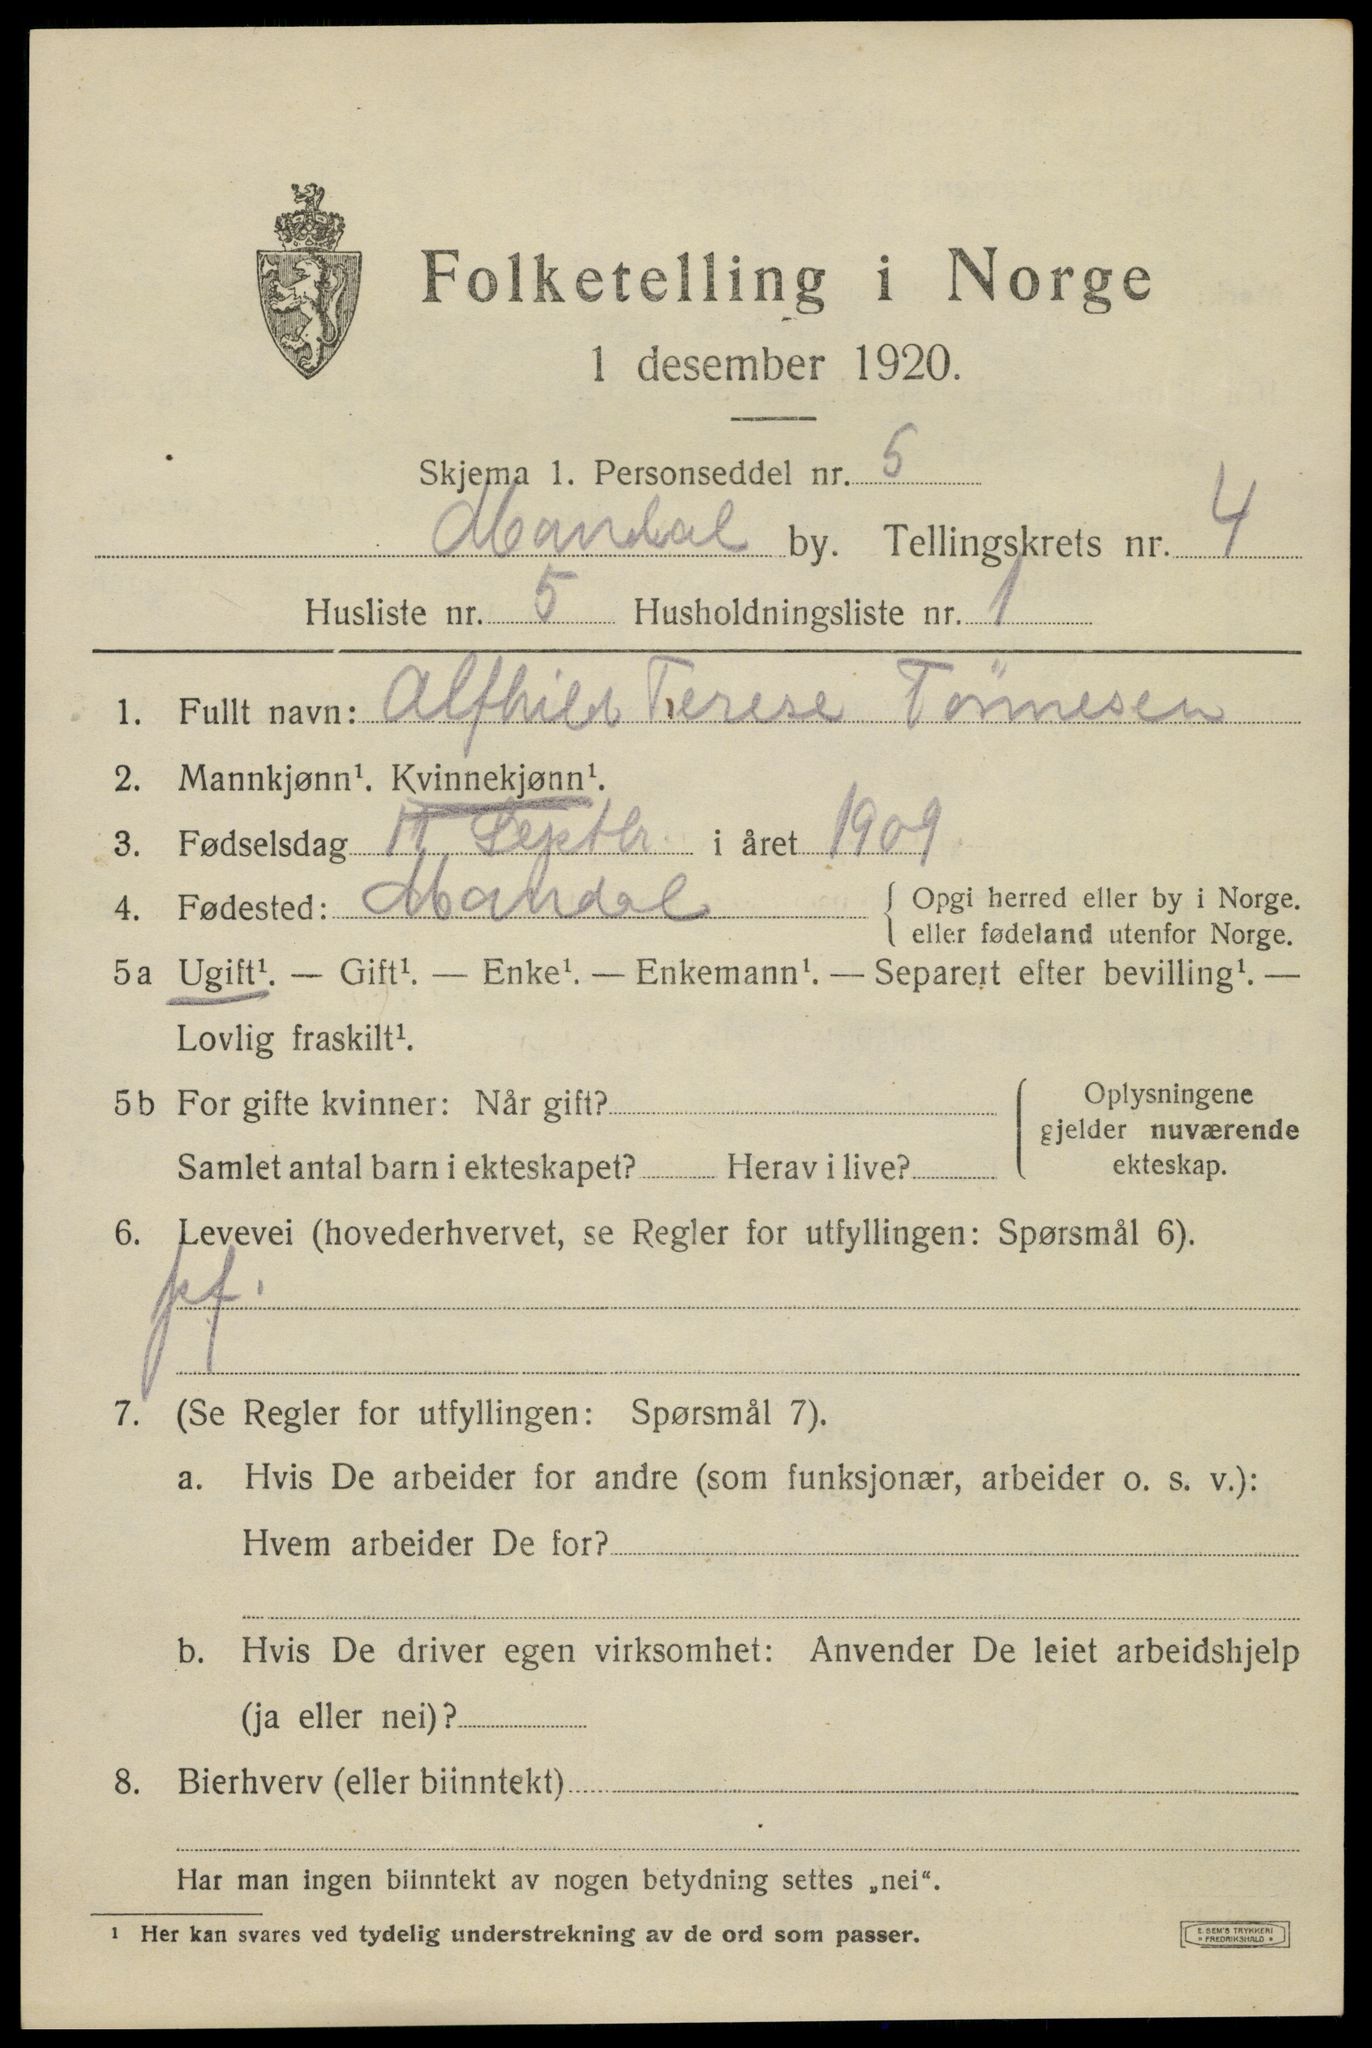 Folketelling i Norge
1 desember 1920.
Skjema 1. Personseddel nr. 5
Mandal by. Tellingskrets nr. 4
Husliste nr. 5 Husholdningsliste nr. 1
1. Fullt navn: Alfhild Terese Tönnesen
2. Mannkjønn¹. Kvinnekjønn¹.
3. Fødselsdag Septbr. i året 1909
4. Fødested: Mandal { Opgi herred eller by i Norge.
eller fødeland utenfor Norge.
5a Ugift¹. — Gift¹. — Enke¹. — Enkemann¹. — Separert efter bevilling¹. —
Lovlig fraskilt¹.
5b For gifte kvinner: Når gift?
Samlet antal barn i ekteskapet? Herav i live?
Oplysningene
gjelder nuværende
ekteskap.
6. Levevei (hovederhvervet, se Regler for utfyllingen: Spørsmål 6).
pf.
7. (Se Regler for utfyllingen: Spørsmål 7).
a. Hvis De arbeider for andre (som funksjonær, arbeider o. s. v.):
Hvem arbeider De for?
b. Hvis De driver egen virksomhet: Anvender De leiet arbeidshjelp
(ja eller nei)?
8. Bierhverv (eller biinntekt)
Har man ingen biinntekt av nogen betydning settes „nei“.
¹ Her kan svares ved tydelig understrekning av de ord som passer.
E. SEM'S TRYKKERI
FREDRIKSHALD